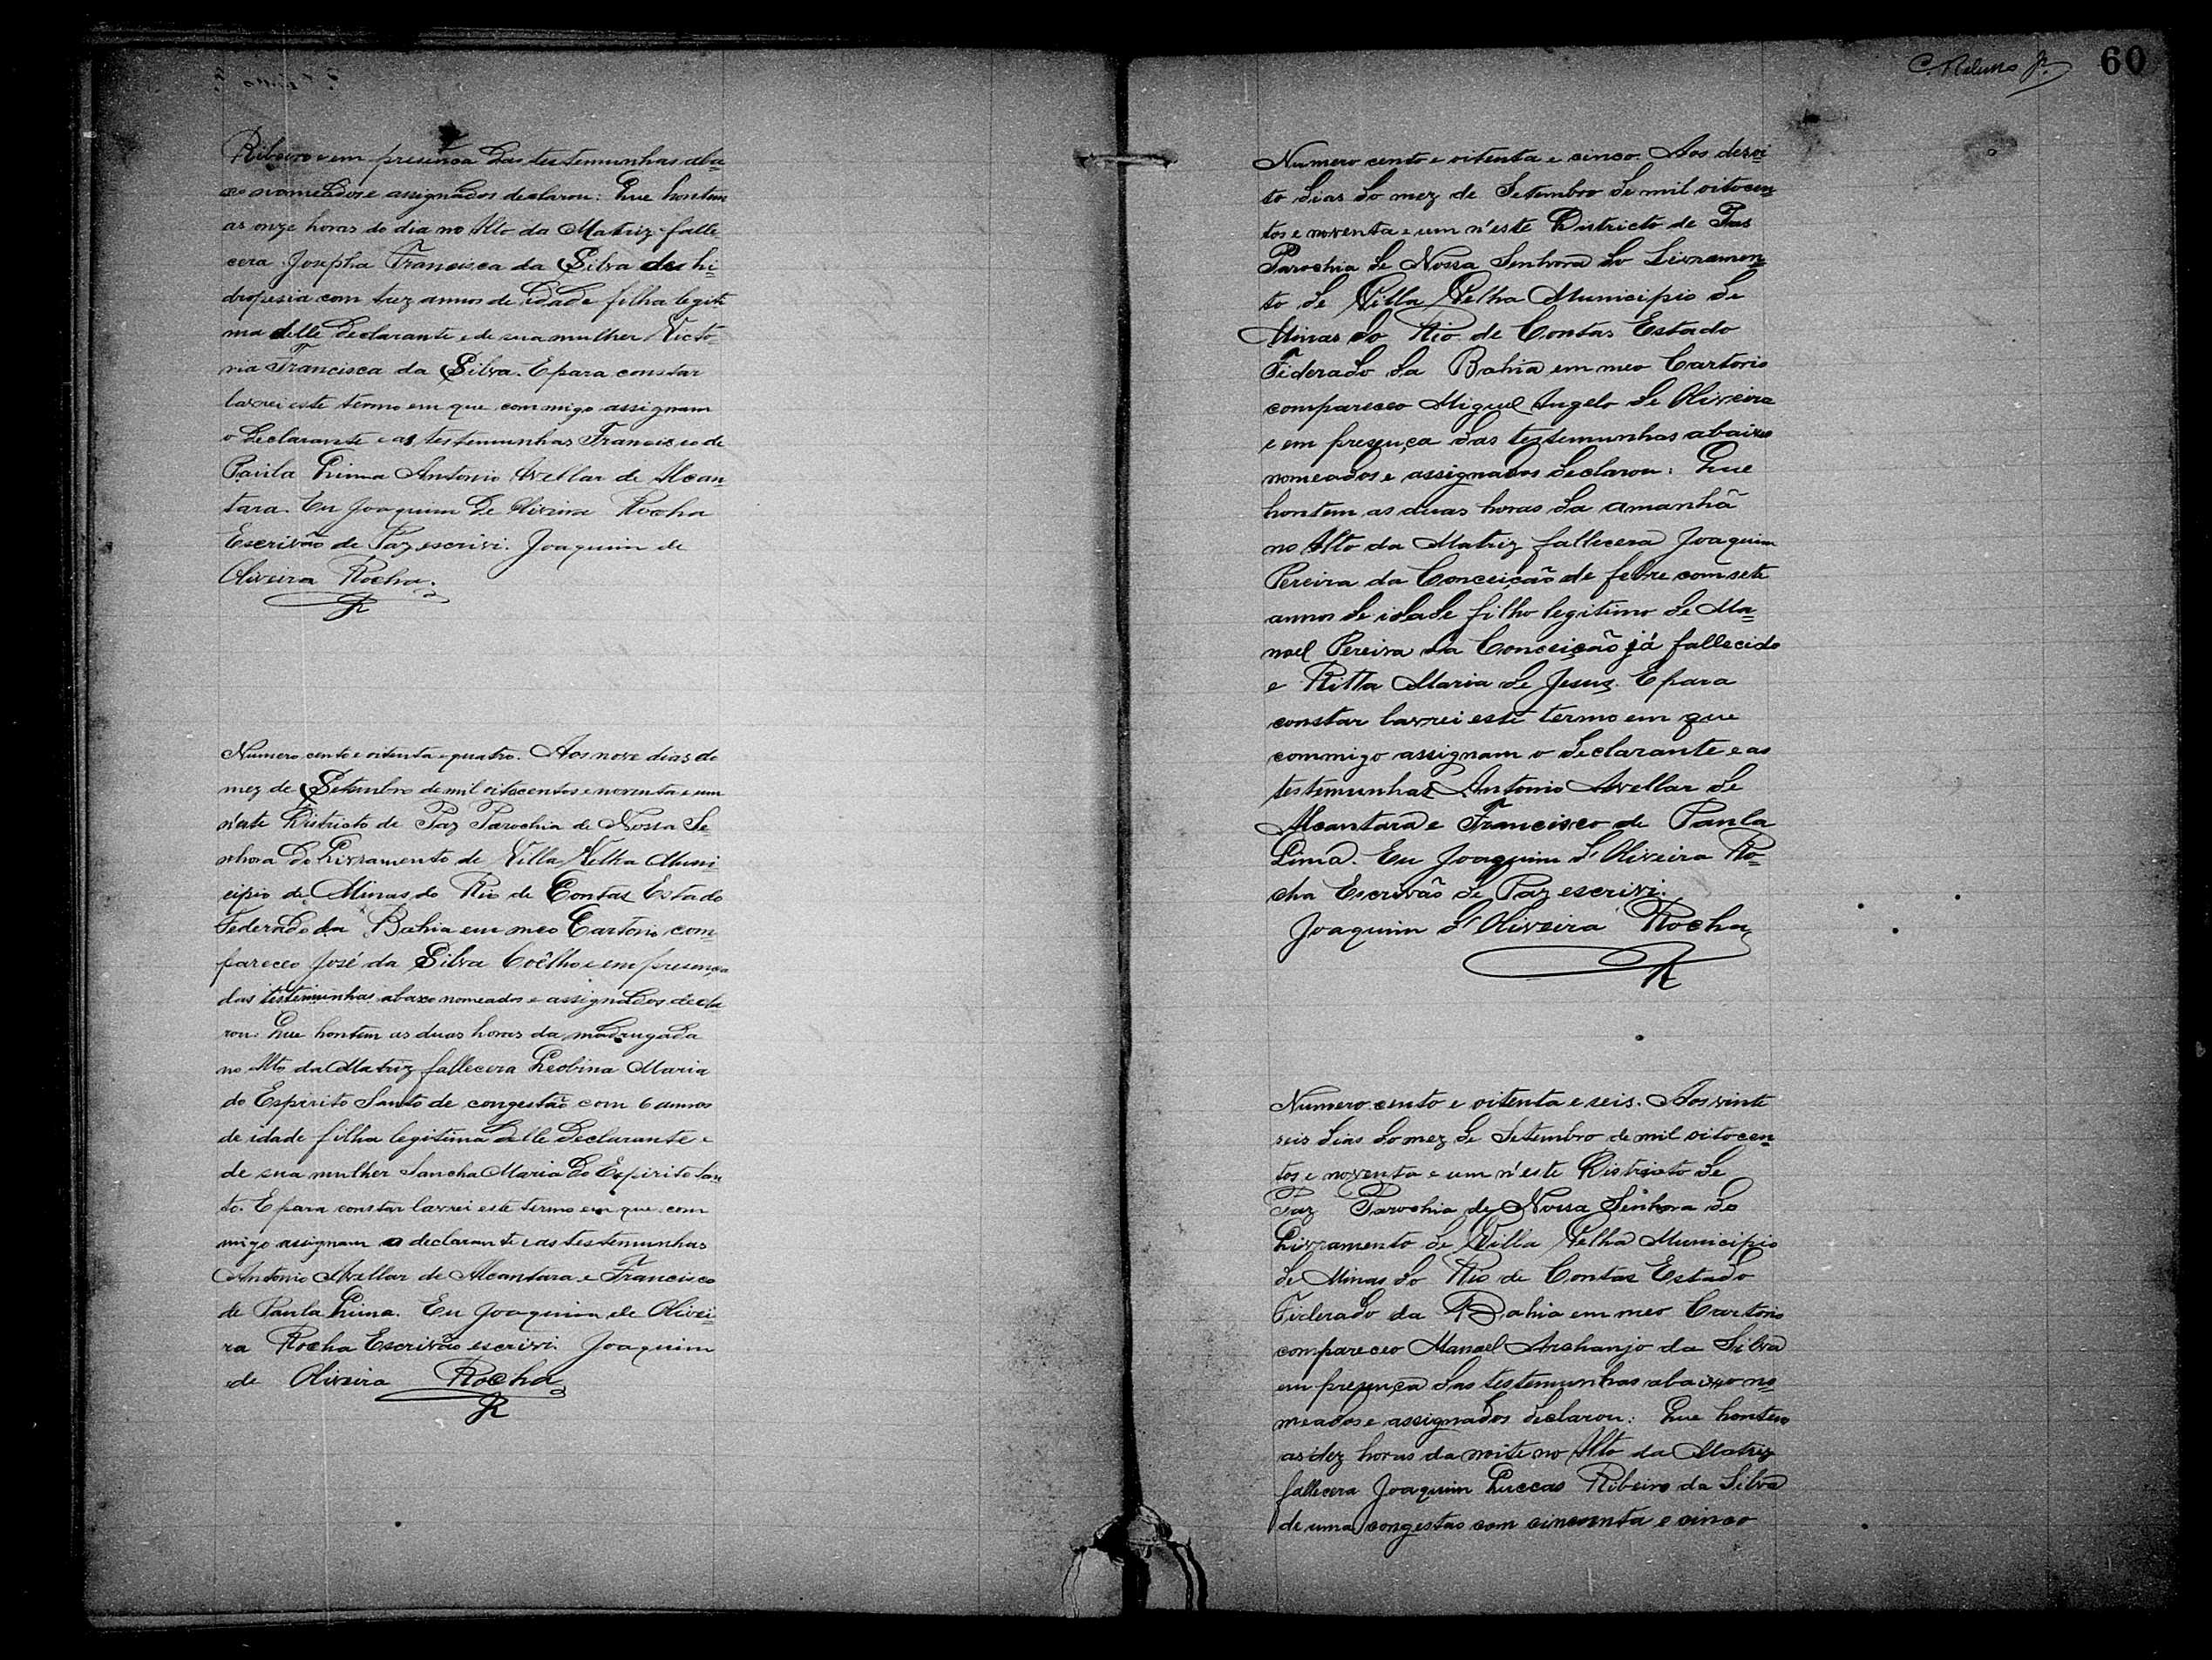 Ribeiro e em presença das testemunhas aba-
xo nomeados e assignados declarou: Que hontem
as onze horas do dia no Alto da Matriz falle
cera Josepha Francisca da Silva de hi-
dropesia com trez annos de idade filha legiti
ma delle Declarante e de sua mulher Victo-
ria Francisca da Silva. E para constar
lavrei este termo em que commigo assignam
o Declarante e as testemunhas Francisco de
Paula Lima Antonio Avellar de Alcan-
tara. Eu Joaquim de Oliveira Rocha
Escrivão de Paz escrivi. Joaquim de
Oliveira Rocha.
R
Numero cento e oitenta e quatro. Aos nove dias do
mez de Setembro de mil oitocentos e noventa e um
n'este Districto de Paz Parochia de Nossa Se-
nhora do Livramento de Villa Velha Muni-
cipio de Minas do Rio de Contas Estado
Federado da Bahia em meo Cartorio com-
pareceo José da Silva Coêlho e em presença
das testemunhas abaxo nomeados e assignados decla
rou: Que hontem as duas horas da madrugada
no Alto da Matriz fallecera Leobina Maria
do Espirito Santo de congestão com 6 annos
de idade filha legitima delle Declarante e
de sua mulher Sancha Maria do Espirito San
to. E para constar lavrei este termo em que com
migo assignam o declarante e as testemunhas
Antonio Avellar de Alcantara e Francisco
de Paula Lima. Eu Joaquim de Olivei-
ra Rocha Escrivão escrivi. Joaquim
de Oliveira Rocha
R
60
Numero cento e oitenta e cinco. Aos desoi-
to dias do mez de Setembro de mil oitocen-
tos e noventa e um n'este Districto de Pas
Parochia de Nossa Senhora do Livramen-
to de Villa Velha Municipio de
Minas do Rio de Contas Estado
Fiderado da Bahia em meo Cartorio
compareceo Miguel Angelo de Oliveira
e em presença das testemunhas abaixo
nomeados e assignados declarou: Que
hontem as duas horas da amanhã
no Alto da Matriz fallecera Joaquim
Pereira da Conceição de febre com sete
annos de idade filho legitimo de Ma-
noel Pereira da Conceição já fallecido
e Ritta Maria de Jesus. E para
constar lavrei este termo em que
commigo assignam o declarante e as
testemunhas Antonio Avellar de
Alcantara e Francisco de Paula
Lima. Eu Joaquim d'Oliveira Ro-
cha Escrivão de Paz escrivi.
Joaquim d'Oliveira Rocha
R
Numero cento e oitenta e seis. Aos vinte
seis dias do mez de Setembro de mil oitocen-
tos e noventa e um n'este Districto de
Paz Parochia de Nossa Senhora do
Livramento de Villa Velha Municipio
de Minas do Rio de Contas Estado
Fiderado da Bahia em meo Cartorio
compareceo Manoel Archanjo da Silva
em presença das testemunhas abaixo no-
meados e assignados declarou: Que hontem
as dez horas da noite no Alto da Matriz
fallecera Joaquim Luccas Ribeiro da Silva
de uma congestao com cincoenta e cinco